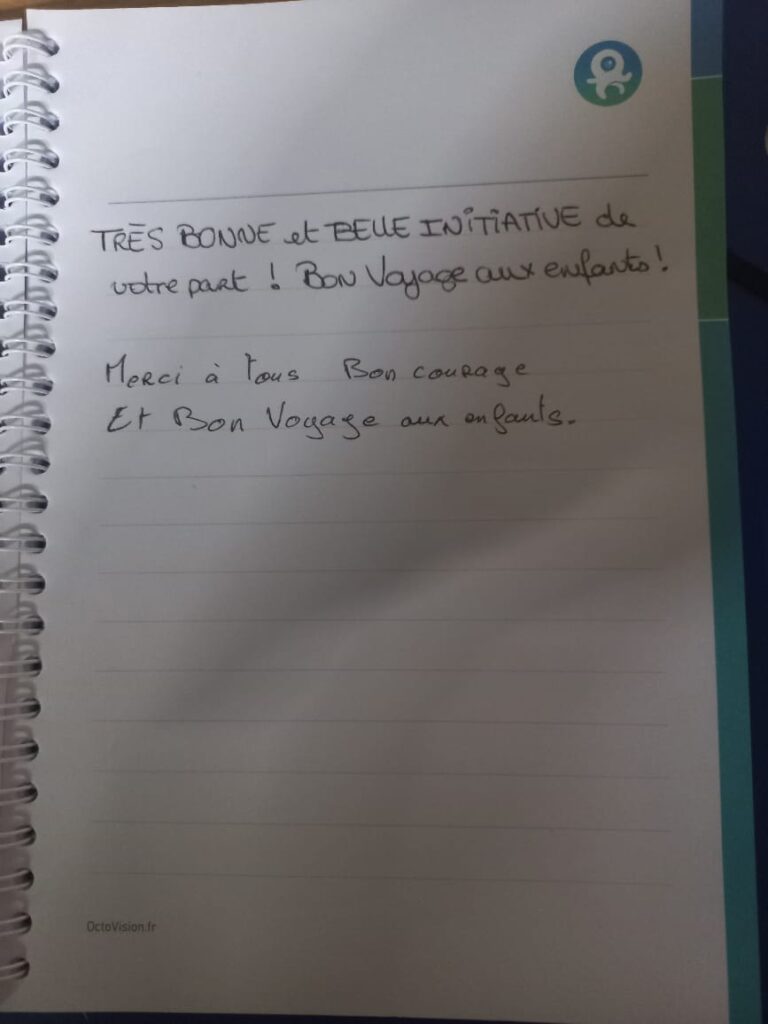 TRÈS BONNE et BELLE INITIATIVE de
votre part ! BON Voyage aux enfants !
Merci à Tous Bon courage
Et Bon Voyage aux enfants.
OctoVision.fr